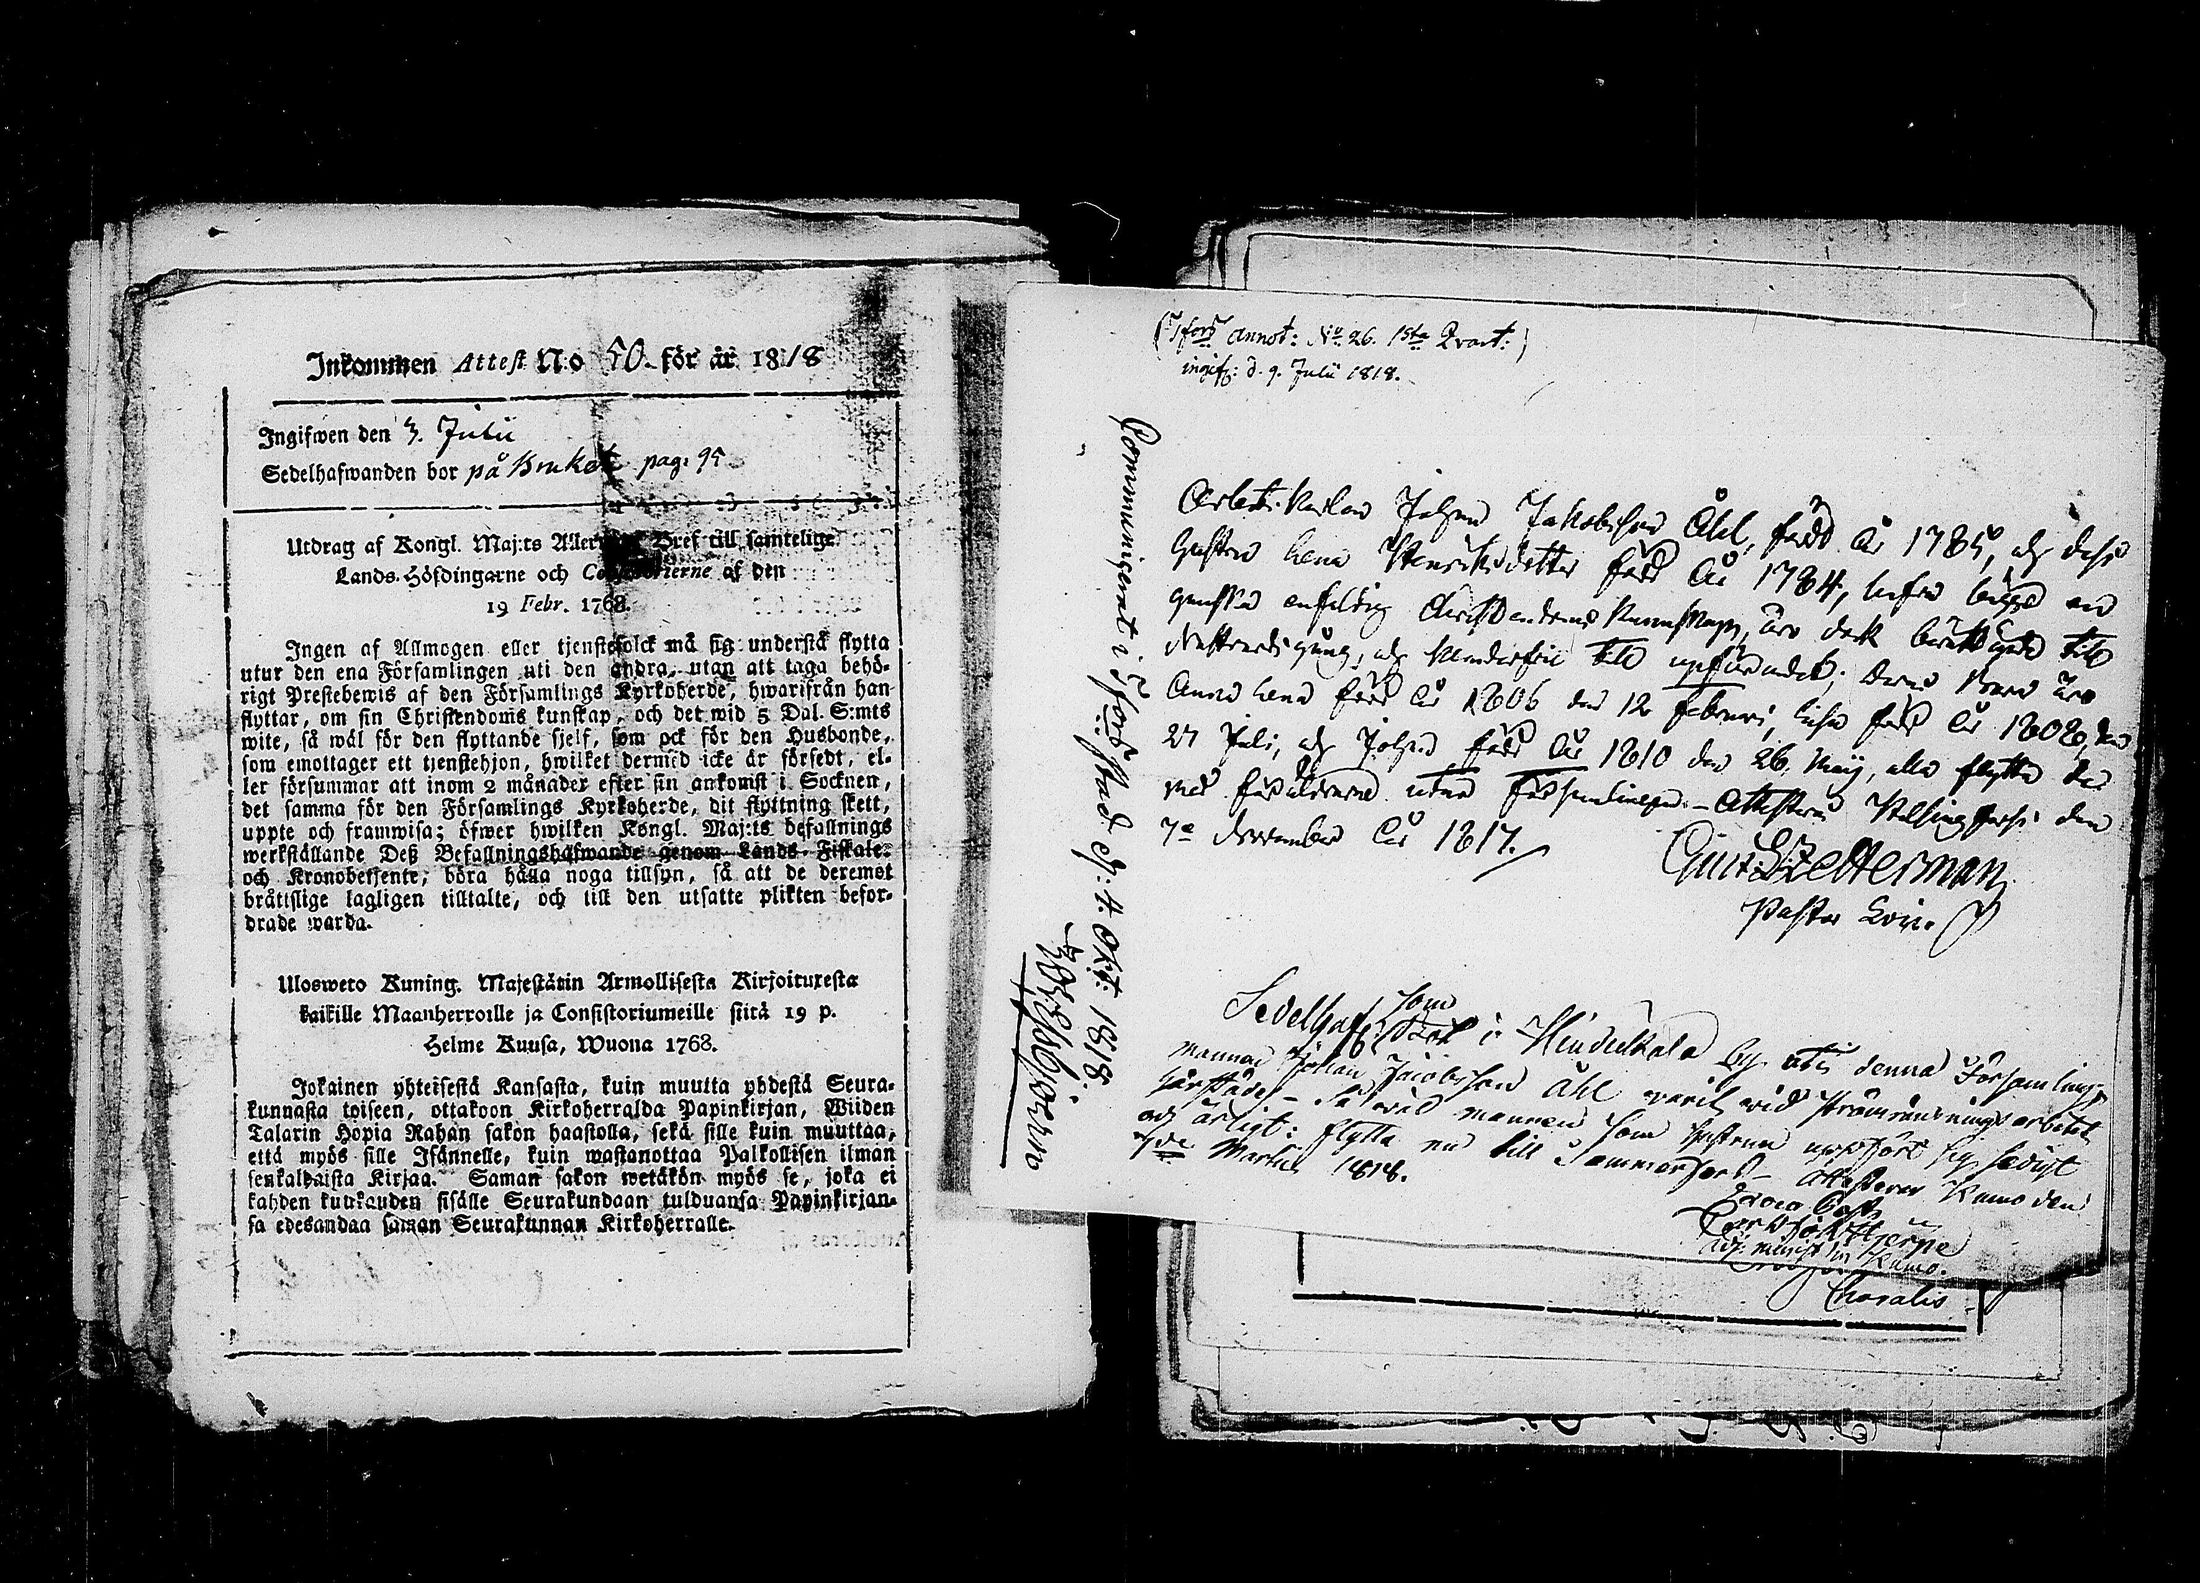 Inkommen Attest N:o 50. för år 1818
Ingifwen den 3. Julii
Sedelhafwanden bor på Bruket pag: 95
Utdrag af Kongl. Maj:ts Bref till samtelige
Lands-Höfdingarne och af den
19 Febr. 1768.
Ingen af Allmogen eller tjenstefolck må sig understå flytta
utur den ena Församlingen uti den andra, utan att taga behö-
rigt Prestebewis af den Församlings Kyrkoherde, hwarifrån han
flyttar, om sin Christendoms kunskap, och det wid 5 Dal. S:mts
wite, så wäl för den flyttande sjelf, som ock för den Husbonde,
som emottager ett tjenstehjon, hwilket dermed icke är försedt, el-
ler försummar att inom 2 månader efter sin ankomst i Socknen,
det samma för den Församlings Kyrkoherde, dit flyttning skett,
uppte och framwisa; öfwer hwilken Kongl. Maj:ts befallnings
werkställande Deß Befallningshafwande genom Lands-Fiskaler
och Kronobetjente, böra hålla noga tillsyn, så att de deremot
bråttslige lagligen tilltalte, och till den utsatte plikten befor-
drade warda.
Ulosweto Kuning. Majestätin Armollisesta Kirjoituxesta
kaikille Maanherroille ja Consistoriumeille siitä 19 p.
Helme Kuusa, Wuona 1768.
Jokainen yhteisestä Kansasta, kuin muutta yhdestä Seura-
kunnasta toiseen, ottakoon Kirkoherralda Papinkirjan, Wiiden
Talarin Hopia Rahan sakon haastolla, sekä sille kuin muuttaa,
että myös sille Isännelle, kuin wastanottaa Palkollisen ilman
senkalbaista Kirjaa. Saman sakon wetäkön myös se, joka ei
kahden kuukauden sisälle Seurakundaan tulduansa Papinkirjan-
sa edesandaa saman Seurakunnan Kirkoherralle.
annot: No 26. 1sta Qvart:)
ingif: d. 9. Julii 1818.
Communicerat i stad d: 4. Oct: 1818.
Arbets Karlen Johan Jakobsson Åhl, född År 1785, och dess
hustru Lena Henriksdotter född År 1784, hafva begge en
ganska enfaldig Christendoms Kunskap, äro dock berättigade till
Nattvardsgång, och klanderfrie till uppförandet; deras Barn äro
Anna Lena född År 1806 den 12 Februari, Lisa född År 1808, den
27 Juli, och Johan född År 1810 den 26 Maij, alla flytta de
med föräldrarne utur församlingen. - Attesterar Helsingfors den
7e November År 1817.
Zetterman
Pastor
Sedelhaf: som i by uti denna Församling,
mannen Johan Jacobsson Åhl varit vid strömränsnings arbetet
härstädes - Så väl mannen som hustrun uppfört sig sedigt
och ärligt: flytta nu till - Attesterar Kumo den
7de Martii 1818.
Kumo.